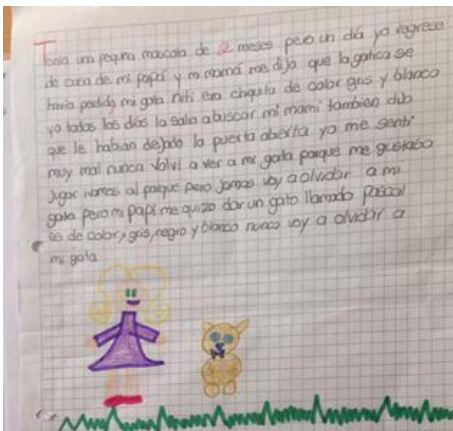 Tenia una pequña mascota de 2 meses pero un día yo regrese
de casa de mi papá y mi mamá me dijo que la gatica se
havia perdido, mi gata era chiquita de color gris y blanco
yo todos los días la salia a buscar mi mami tambien dijo
que le habian dejado la puerta abierta yo me senti
muy mal nunca volvi a ver a mi gata porque me gustaba
jugar irnos al parque pero jamas voy a olvidar a mi
gata pero mi papi me quizo dar un gato llamado pascal
es de color, gris, negro y blanco nunca voy a olvidar a
mi gata